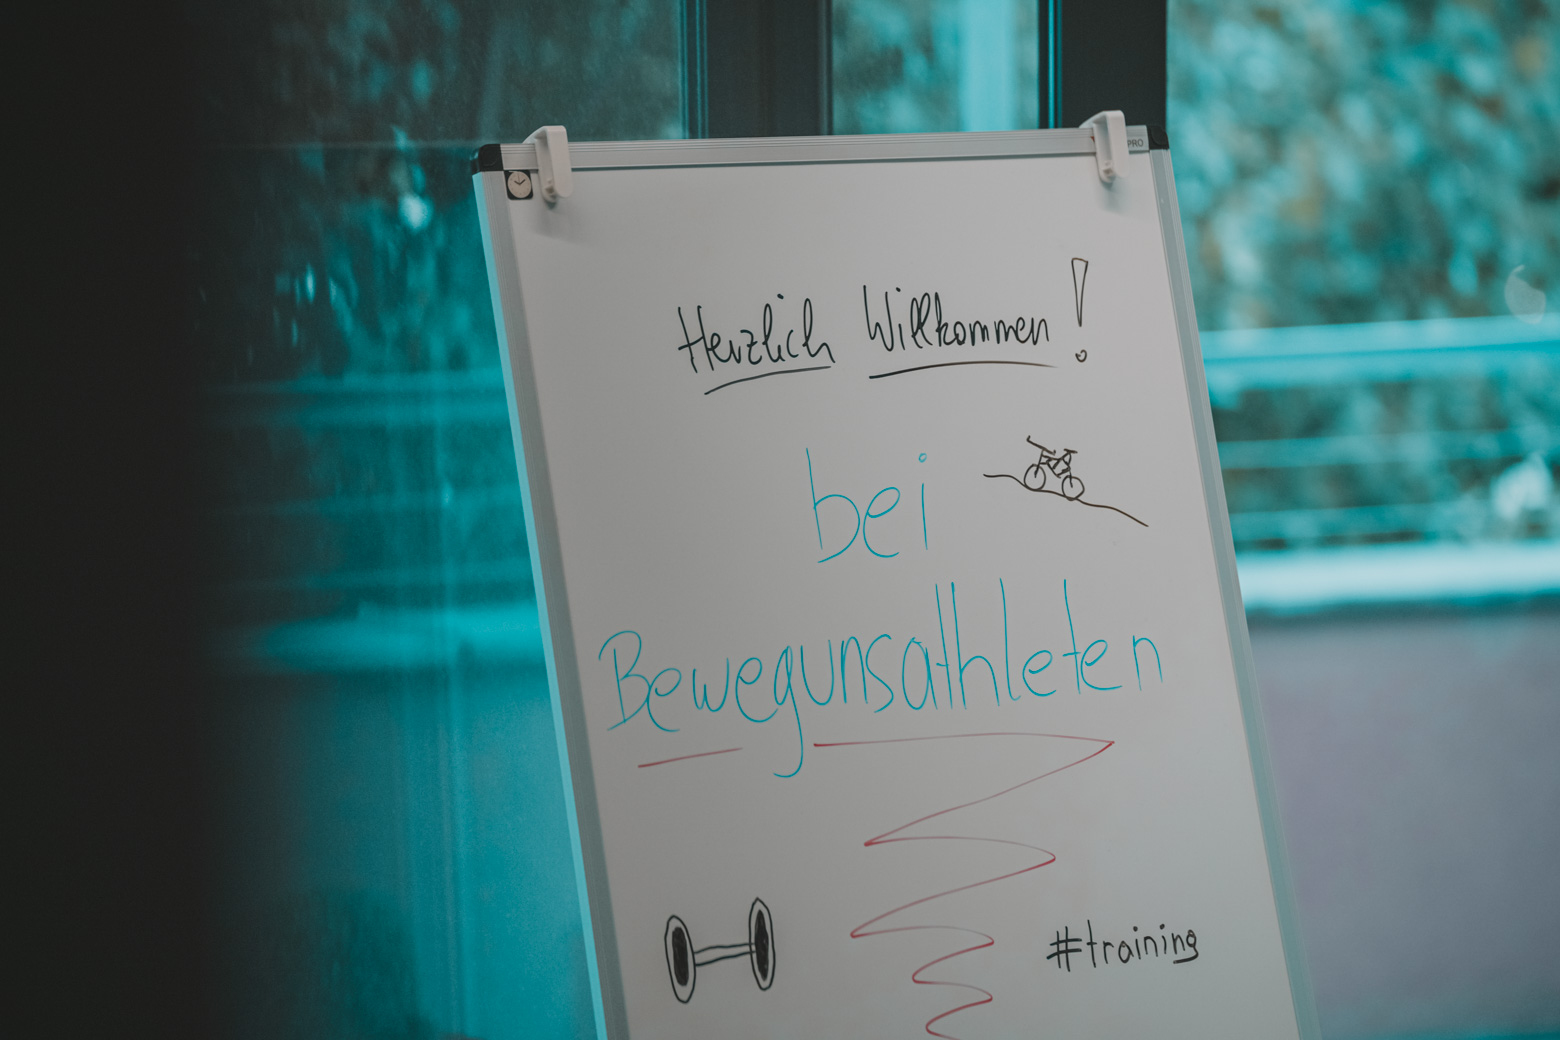 PRO
Herzlich Willkommen!
bei
Bewegunsathleten
#training